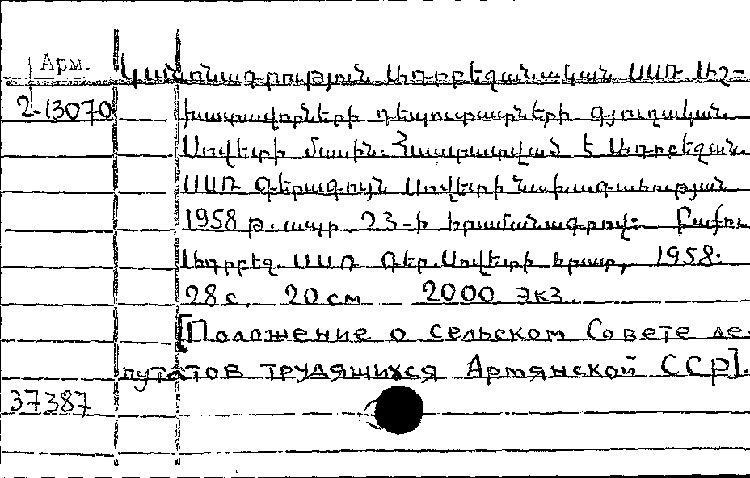 Арм.
Կանոնադրություն Ադրբեջանական ՍՍՌ Աշ-
2-13070
խատավորների դեպուտատների գյուղական
Սովետի մասին. Հաստատված է Ադրբեջան.
ՍՍՌ Գերագույն Սովետի նախագահության
1958 թ. ապր. 23-ի հրամանագրով: Բաքու
Ադրբեջ. ՍՍՌ Գեր. Սովետի հրատ, 1958:
28 с. 20 см 2000 экз.
[Положение о сельском Совете де-
путатов трудящихся Армянской ССР].
37387